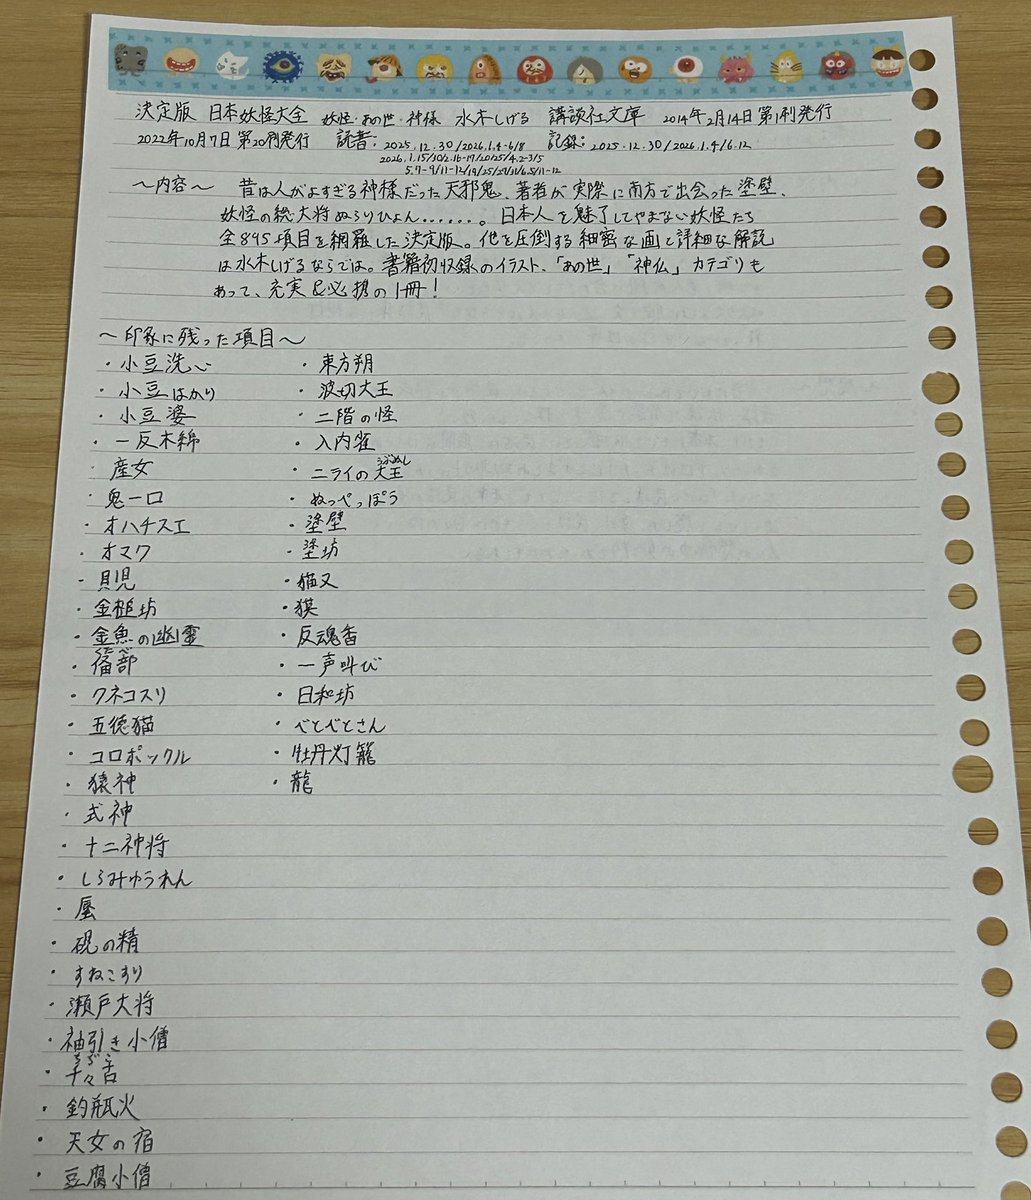 決定版 日本妖怪大全 妖怪・あの世・神様 水木しげる 講談社文庫 2014年2月14日第1刷発行
2022年10月7日 第20刷発行 読書: 2025.12.30/2026.1.4-6/8 記録: 2025.12.30/2026.1.4/6.12
2026.1.15/30/2.16-17/20/25/4.2-3/5
5.7-9/11-12/19/25/27/31/6.5/11-12
〜内容〜 昔は人がよすぎる神様だった天邪鬼、著者が実際に南方で出会った塗壁、
妖怪の総大将ぬらりひょん……。日本人を魅了してやまない妖怪たち
全895項目を網羅した決定版。他を圧倒する細密な画と詳細な解説
は水木しげるならでは。書籍初収録のイラスト、「あの世」「神仏」カテゴリも
あって、充実&必携の1冊!
〜印象に残った項目〜
・小豆洗い
・小豆はかり
・小豆婆
・一反木綿
・産女
・鬼一口
・オハチスエ
・オマク
・貝児
・金槌坊
・金魚の幽霊
くたべ
・倩部
・クネユスリ
・五徳猫
・コロポックル
・猿神
・式神
・十二神将
・しらみゆうれん
・蜃
・硯の精
・すねこすり
・瀬戸大将
・袖引き小僧
ちぢこ
・千々古
・釣瓶火
・天女の宿
・豆腐小僧
・東方朔
・波切大王
・二階の怪
・入内雀
・ニライの大王
・ぬっぺっぽう
・塗壁
・塗坊
・猫又
・獏
・反魂香
・一声叫び
・日和坊
・べとべとさん
・牡丹灯籠
・龍